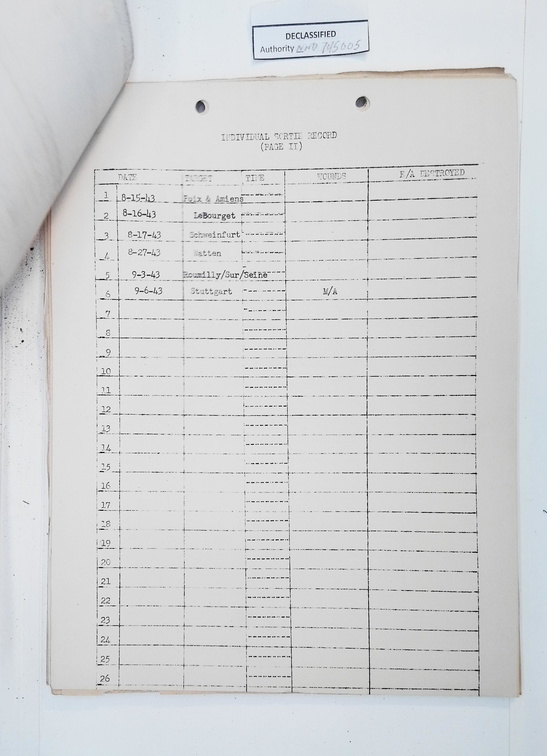 DECLASSIFIED
Authority NND 745005
INDIVIDUAL SORTIE RECORD
(PAGE II)
DATE TARGET TIME WOUNDS E/A DESTROYED
1 8-15-43 Poix & Amiens
2 8-16-43 LeBourget
3 8-17-43 Schweinfurt
4 8-27-43 Watten
5 9-3-43 Romilly/Sur/Seine
6 9-6-43 Stuttgart M/A
7
8
9
10
11
12
13
14
15
16
17
18
19
20
21
22
23
24
25
26